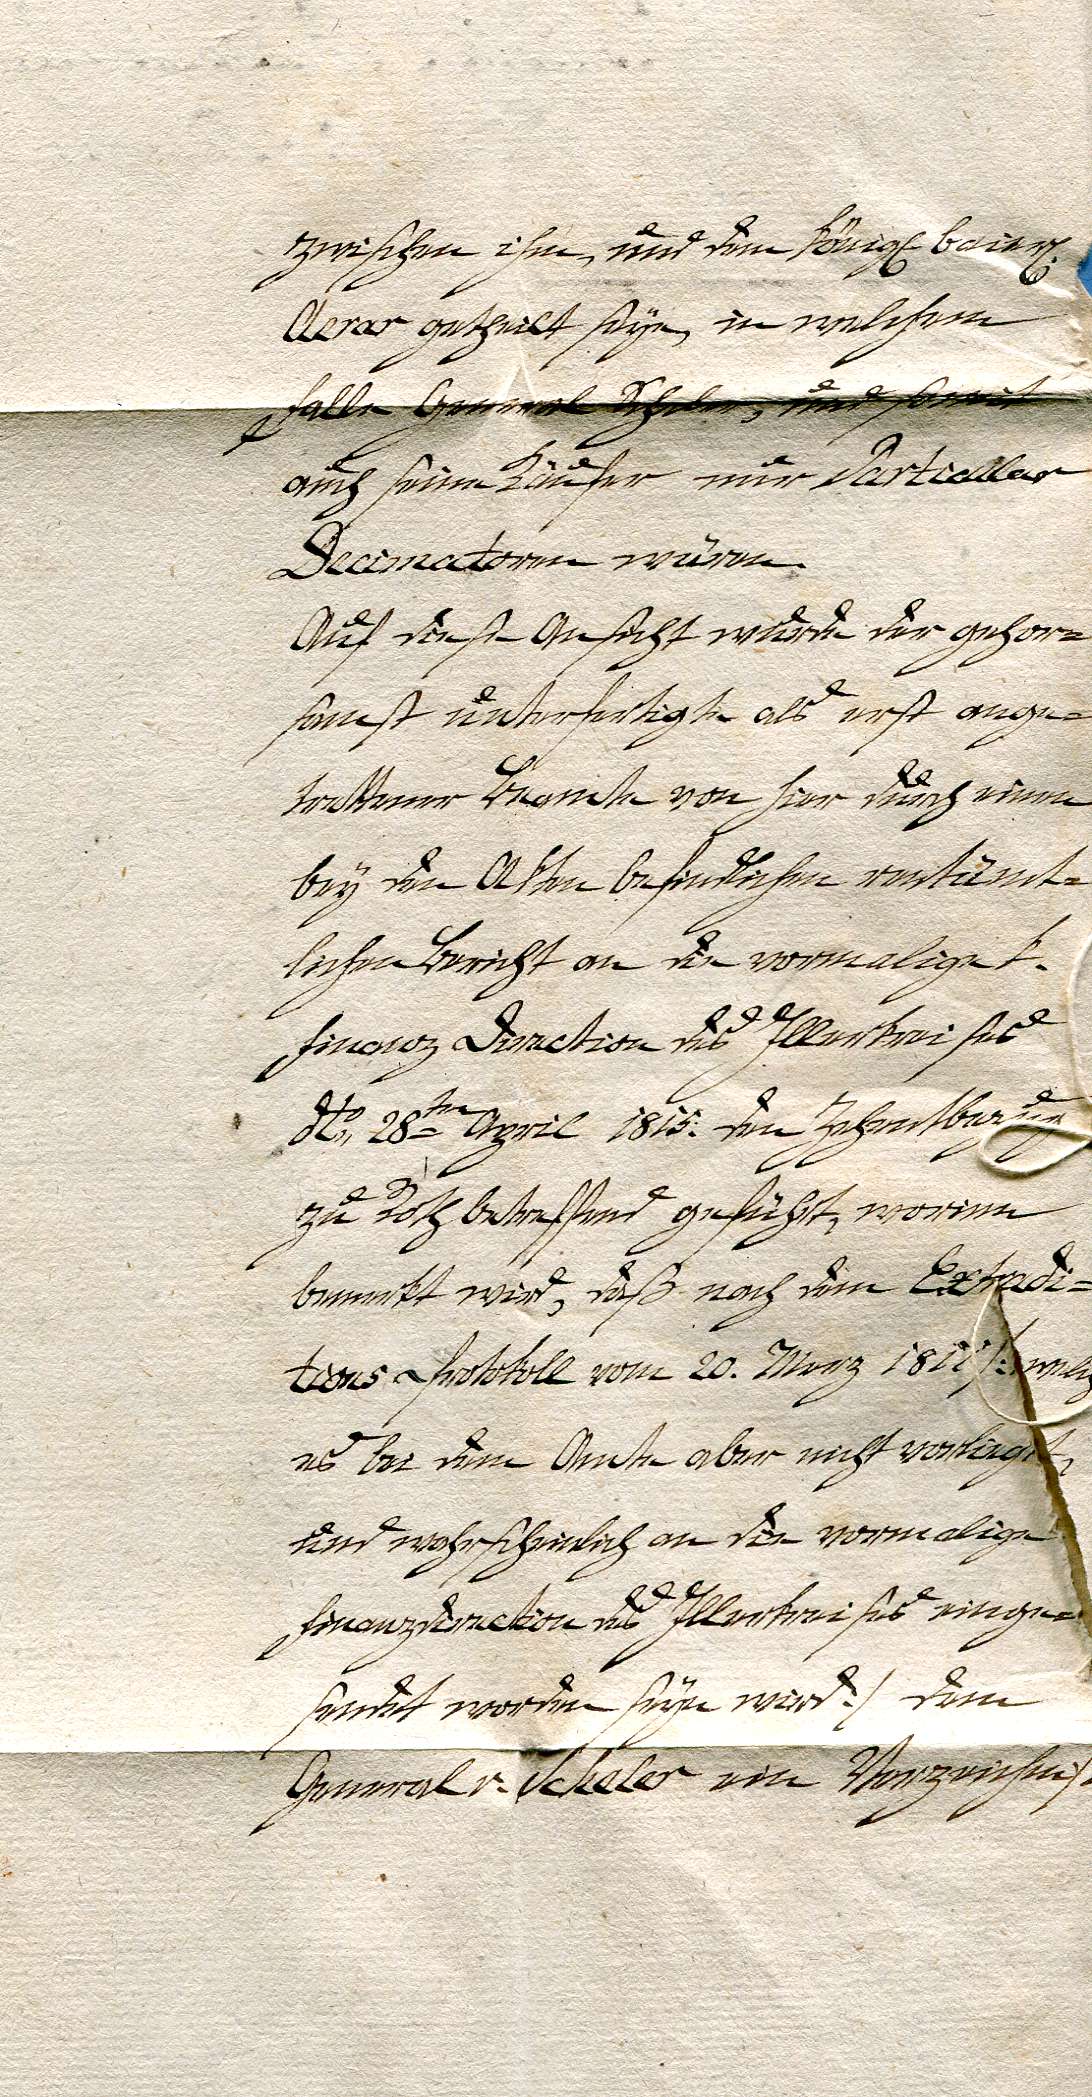 zwischen ihm, und dem Königl. baier.
Aerar getheilt seye, in welchem
Falle General Scheler, und somit
auch seine Käufer nur Particular
Decimatoren wären.
Auf diese Ansicht wurde der gehor=
samst unterfertigte als erst ange=
trettener Beamte von hier durch einen
bey den Akten befindlichen rentämt=
lichen Bericht an die vormalige k.
Finanz Direction des Illerkreises
dto. 28ten April 1815. den Zehentbezug
zu Roth betreffend geführt, worinn
bemerkt wird, daß nach dem Extradi=
tions Protokoll vom 20. Merz 1811 /: welch
es bei dem Amte aber nicht vorliegt,
und wahrscheinlich an die vormalige
Finanzdirection des Illerkreises einge=
sendet worden seyn wird :/ dem
General v. Scheler ein Verzeichniß